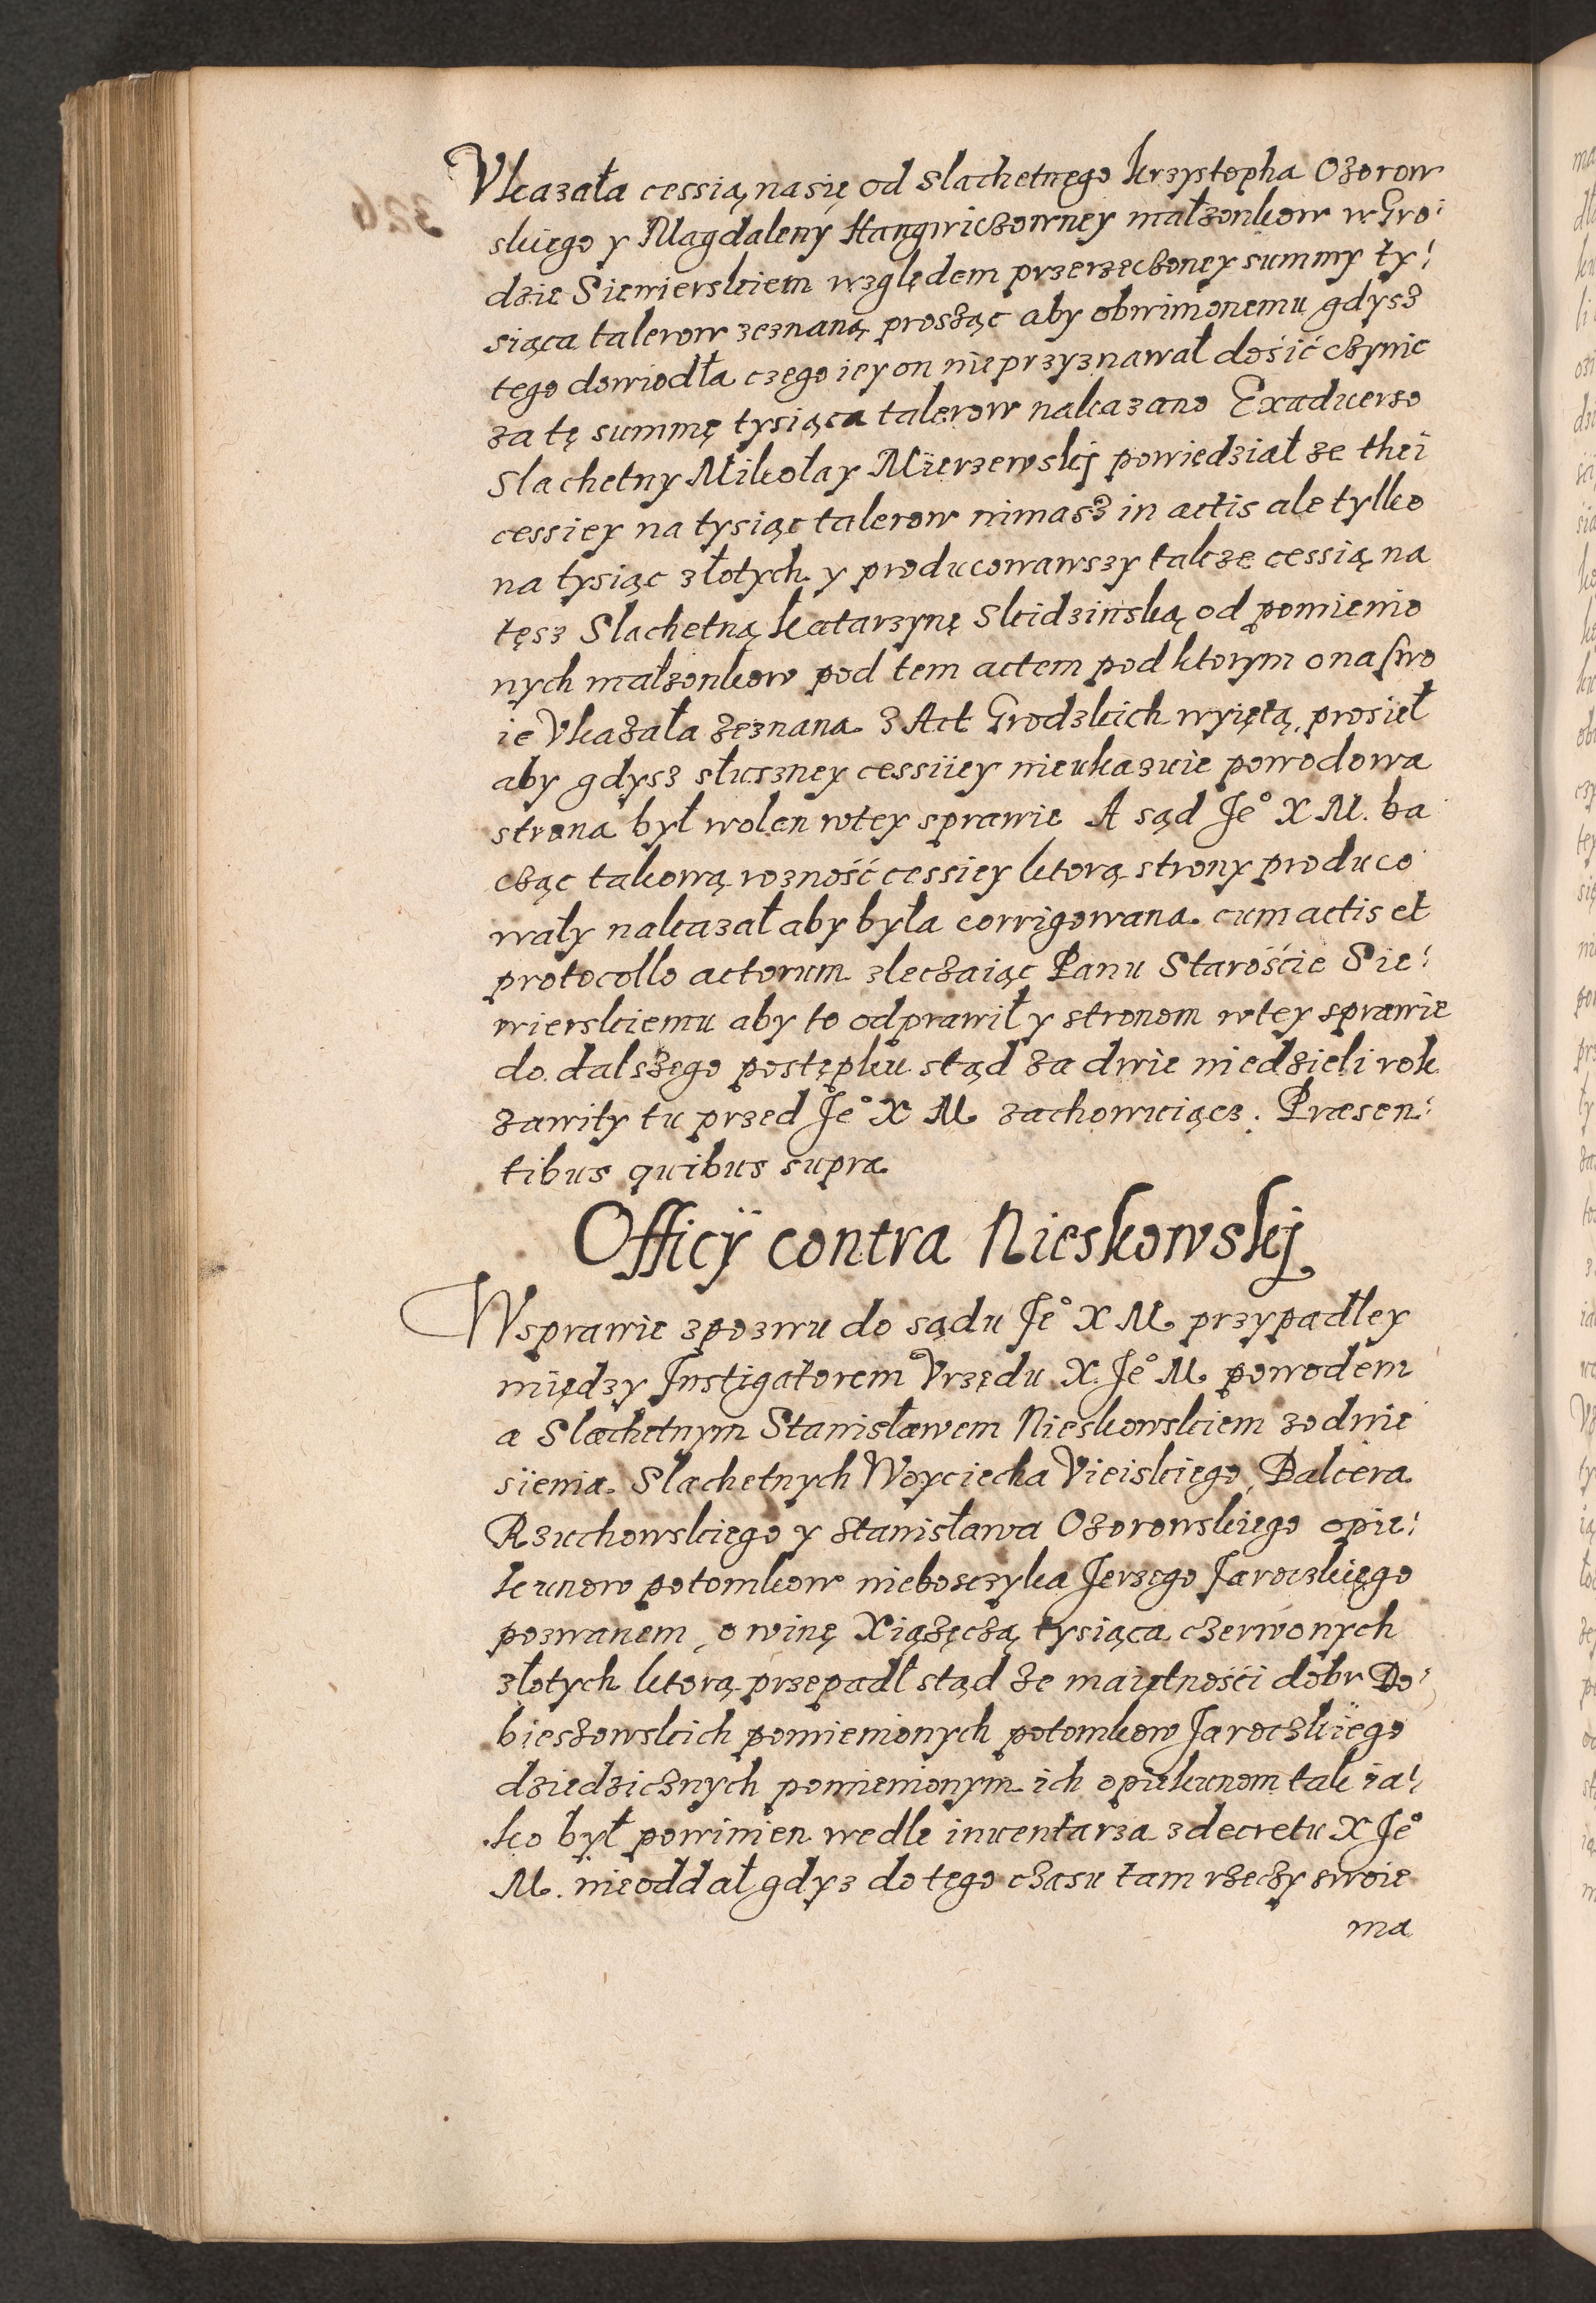 Vkazała cessią na się od Slachetnego Krzystopha Ozorow
skiego y Magdaleny Hangwiczowney małzonkow w Gro:
dzie Siewierskiem względem przerzeczoney summy ty:
siąca talerow zeznaną prosząc aby obwinionemu gdysz
tego dowiodła czego iey on nieprzyznawał dosić czynic
za tę summę tysiąca talerow nakazano Exaduerso
Slachetny Mikołay Mierzewskj powiedział ze thei
cessiey na tysiąc talerow nimasz in actis ale tylko
na tysiąc złotych y producowawszy takze cessią na
tęsz Slachetną Katarzynę Skidzinską od pomienio
nych małzonkow pod tem actem pod ktorym ona swo
ie Vkazała zeznana z Act Grodzkich wyiętą, prosieł
aby gdysz słuszney cessiiey nieukazuie powodowa
strona był wolen wtey sprawie A sąd Je° X M. ba
cząc takową rozność cessiey ktorą strony produco
wały nakazał aby była corrigowana cum actis et
protocollo actorum zleczaiąc Panu Staroście Sie:
wierskiemu aby to odprawił y stronom wtey sprawie
do dalszego postępku stąd za dwie niedzieli rok
zawity tu przed Je° X M zachowuiącz. Præsen:
tibus quibus supra
Officÿ contra Nieskowskj
W sprawie zpozwu do sądu Je° X M przypadłey
między Instigatorem Vrzędu X. Je° M. powodem
a Slachetnym Stanisławem Nieskowskiem zodnie
sienia Slachetnych Woyciecha Vieiskiego, Balcera
Rzuchowskiego y Stanisława Ozorowskiego opie:
kunow potomkow nieboszczyka Jerzego Jaroczkiego
pozwanem, o winę Xiązęczą tysiąca czerwonych
złotych ktorą przepadł stąd ze maiętności dobr Do:
bieszowskich pomienionych potomkow Jaroczkiego
dziedzicznych pomienionym ich opiekunom tak ia:
ko był powinien wedle inuentarza z decretu X Je°
M. nieoddał gdyz do tego czasu tam rzeczy swoie
ma
326